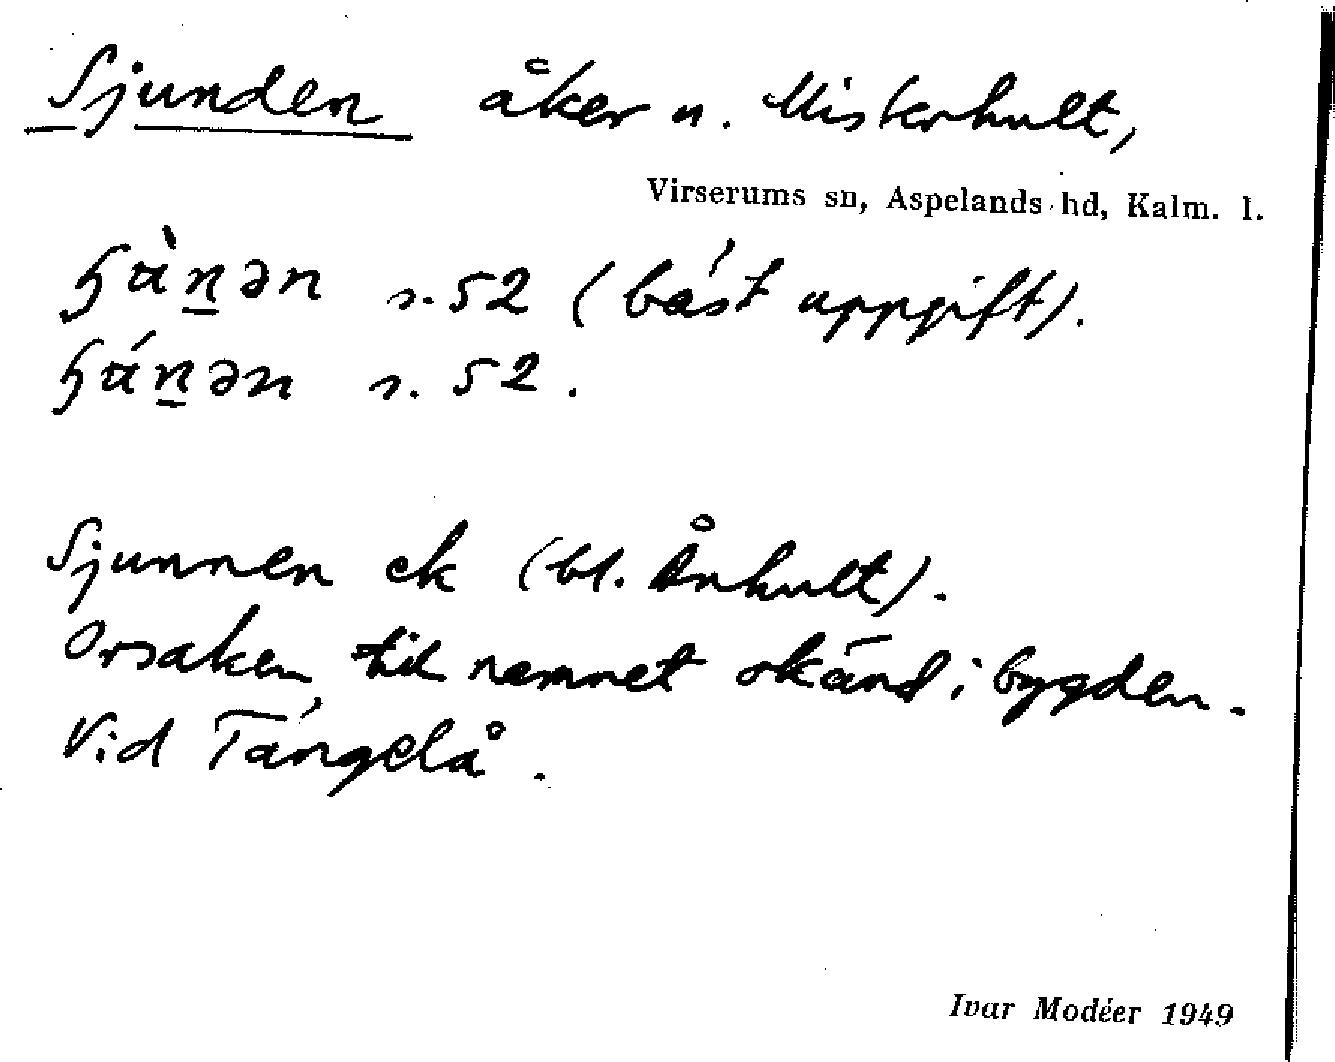 Sjunden åker u. Misterhult,
Virserums sn, Aspelands hd, Kalm. l.
s. 52 (bäst uppgift).
s. 52.
Sjunnen ek (bl. Ånhult).
Orsaken till namnet okänd i bygden.
Vid Tängelå.
Ivar Modéer 1949